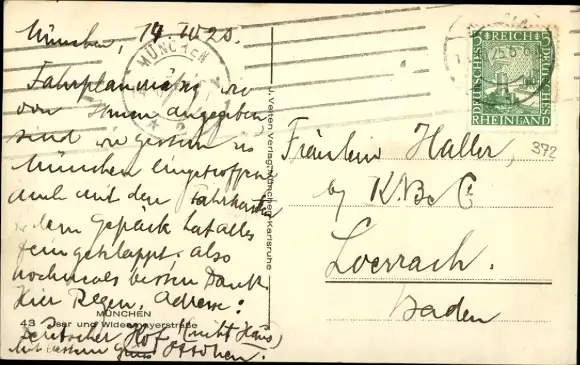 München, 14. IV 25.
Fahrplanmäßig wie
von Ihnen angegeben
sind wir gestern in
München eingetroffen
auch mit den Fahrkarten
u. dem Gepäck hat alles
fein geklappt. Also
nochmals besten Dank.
Hier Regen. Adresse:
Deutscher Hof (nicht Haus)
Mit bestem Gruss
MÜNCHEN
43 Isar und Widenmayerstraße
J. Velten Verlag, München-Karlsruhe
MÜNCHEN
DEUTSCHES REICH
5 5
RHEINLAND
Fräulein Haller,
by K.B. C
Loerrach.
Baden
372